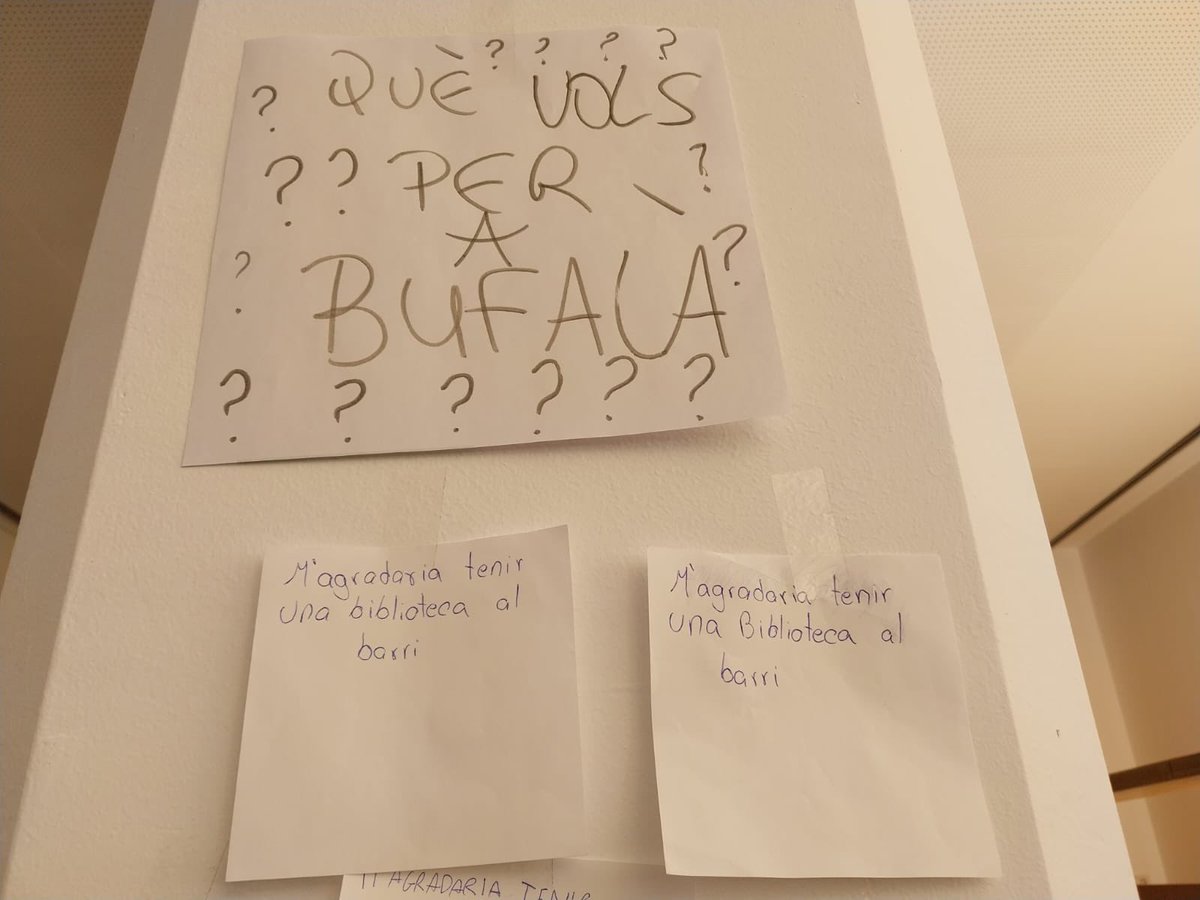 ? QUÈ ? ? VOLS ? ?
? ? PER ?
A
? BUFALÀ ?
? ? ? ? ? ?
M'agradaria tenir
una biblioteca al
barri
M'agradaria tenir
una Biblioteca al
barri
M'AGRADARIA TENIR